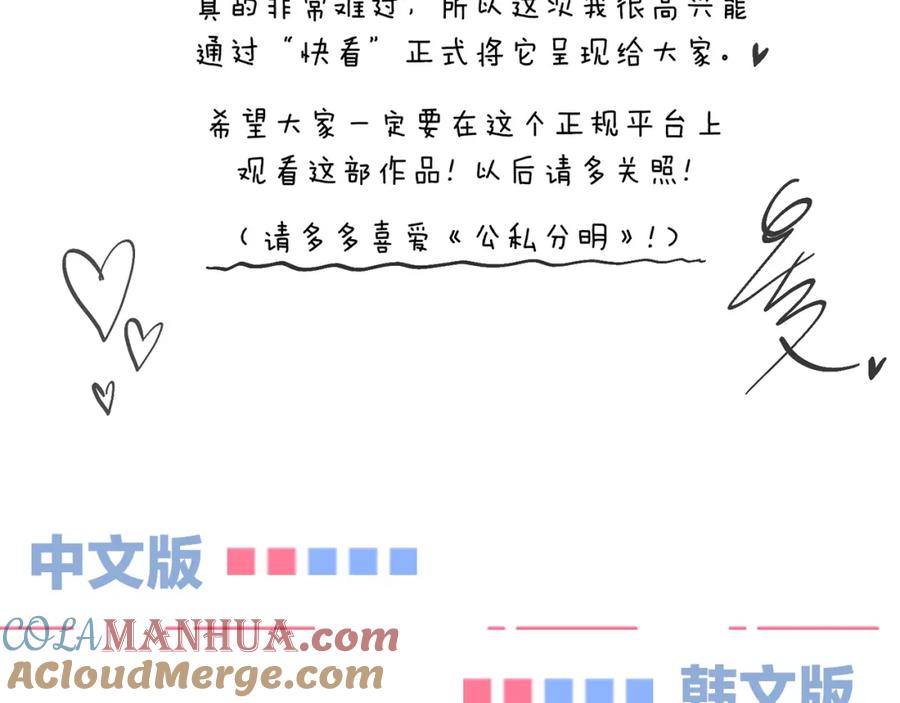 真的非常难过，所以这次我很高兴能
通过“快看”正式将它呈现给大家。
希望大家一定要在这个正规平台上
观看这部作品！以后请多关照！
（请多多喜爱《公私分明》！）
中文版
COLAMANHUA.com
ACloudMerge.com
韩文版